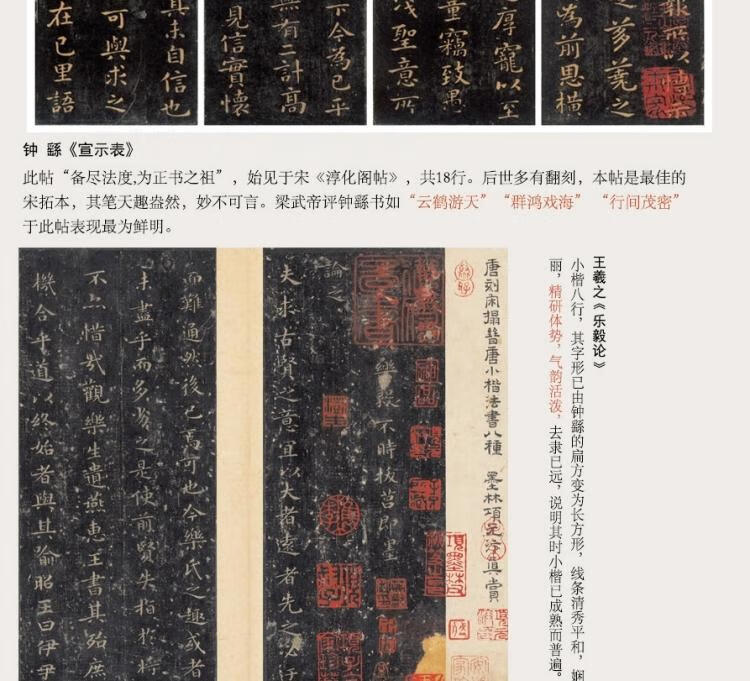 所以博示
芻蕘之
為前恩橫
厚寵以至
量竊致愚
淺聖意所
下今為已平
無有二計高
見信實懷
其未自信也
可與求之
在己里語
钟 繇《宣示表》
此帖“备尽法度,为正书之祖”，始见于宋《淳化阁帖》，共18行。后世多有翻刻，本帖是最佳的
宋拓本，其笔天趣盎然，妙不可言。梁武帝评钟繇书如“云鹤游天”“群鸿戏海”“行间茂密”
于此帖表现最为鲜明。
王羲之《乐毅论》
小楷八行，其字形已由钟繇的扁方变为长方形，线条清秀平和，娴
丽，精研体势，气韵活泼，去隶已远，说明其时小楷已成熟而普遍。
唐刻宋搨晉唐小楷法書八種 墨林項元汴真賞
樂毅不時拔莒即墨
論之
夫求古賢之意宜以大者遠者先之必迂
而難通然後已焉可也今樂氏之趣或者
未盡乎而多劣之是使前賢失指於將
不亦惜哉觀樂生遺燕惠王書其殆庶
機合乎道以終始者與其喻昭王曰伊尹